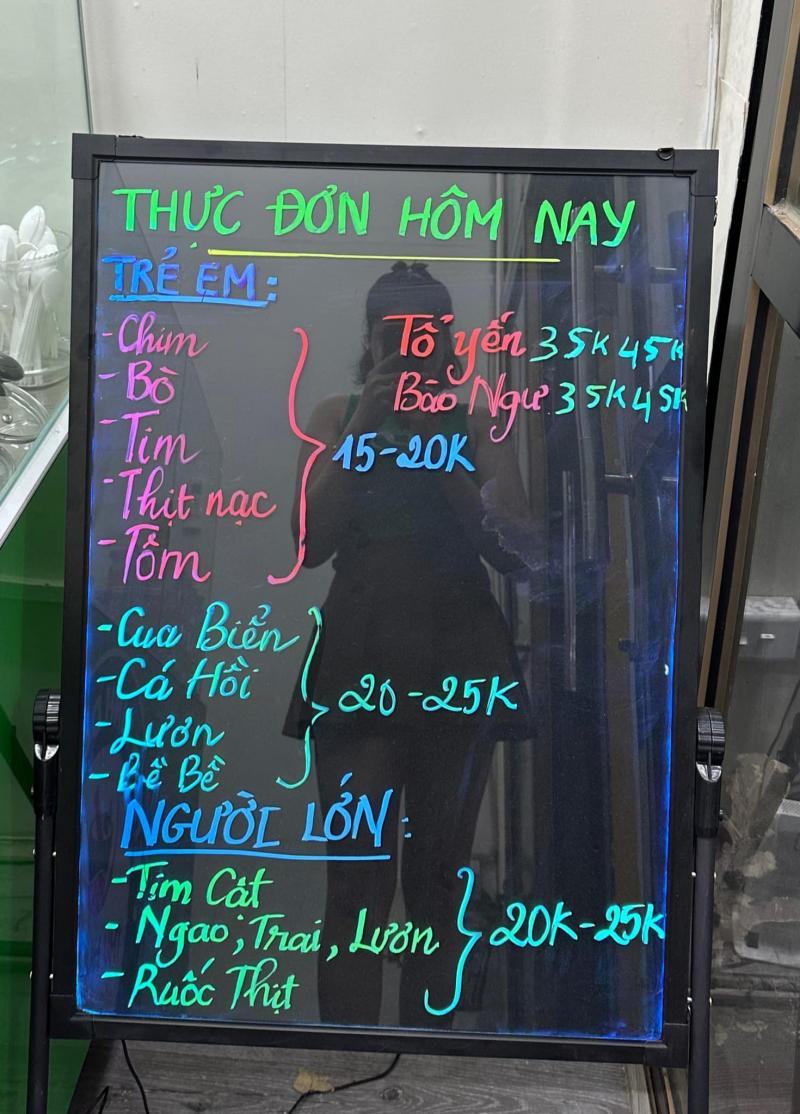 THỰC ĐƠN HÔM NAY
TRẺ EM:
- Chim
- Bò
- Tim
- Thịt nạc
- Tôm
15-20K
Tổ yến 35K 45K
Bào Ngư 35K 45K
- Cua Biển
- Cá Hồi
- Lươn
- Bề Bề
20-25K
NGƯỜI LỚN:
- Tim Cật
- Ngao, Trai, Lươn
- Ruốc Thịt
20K-25K